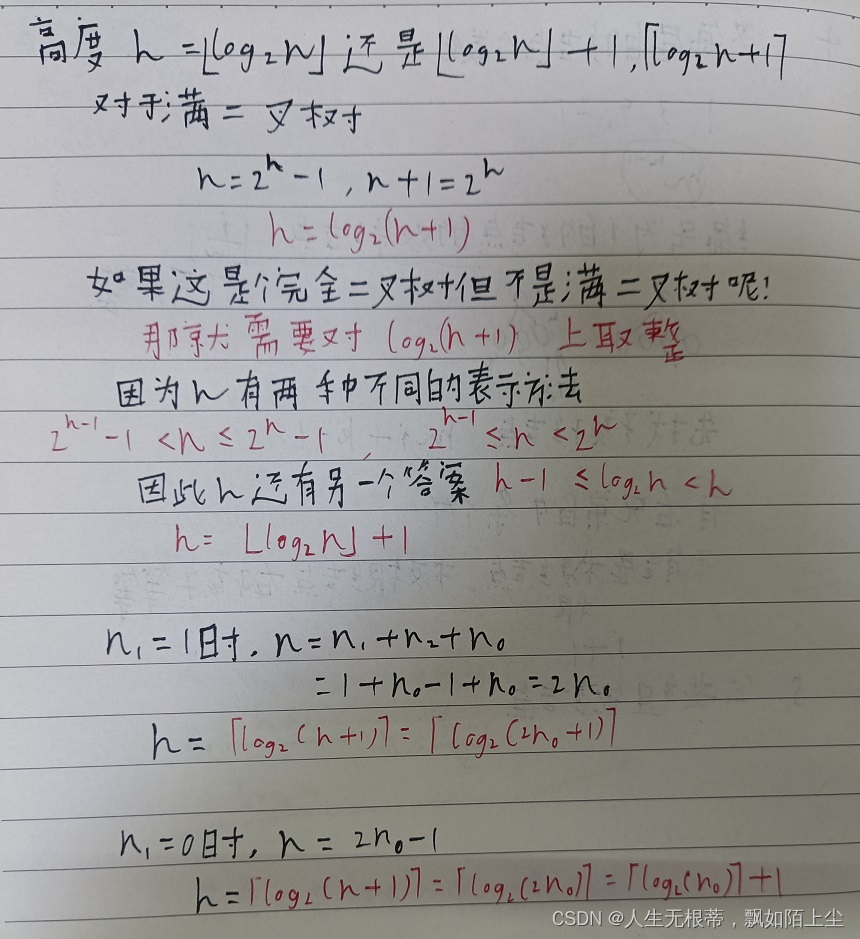 高度 h = ⌊log₂n⌋ 还是 ⌊log₂n⌋ + 1, ⌈log₂n+1⌉
对于满二叉树
n = 2^h - 1, n + 1 = 2^h
h = log₂(n+1)
如果这是个完全二叉树但不是满二叉树呢!
那就需要对 log₂(n+1) 上取整
因为h有两种不同的表示方法
2^(h-1) - 1 < n ≤ 2^h - 1, 2^(h-1) ≤ n < 2^h
因此h还有另一个答案 h-1 ≤ log₂n < h
h = ⌊log₂n⌋ + 1
n₁ = 1时, n = n₁ + n₂ + n₀
= 1 + n₀ - 1 + n₀ = 2n₀
h = ⌈log₂(n+1)⌉ = ⌈log₂(2n₀+1)⌉
n₁ = 0时, n = 2n₀ - 1
h = ⌈log₂(n+1)⌉ = ⌈log₂(2n₀)⌉ = ⌈log₂(n₀)⌉ + 1
CSDN @人生无根蒂，飘如陌上尘